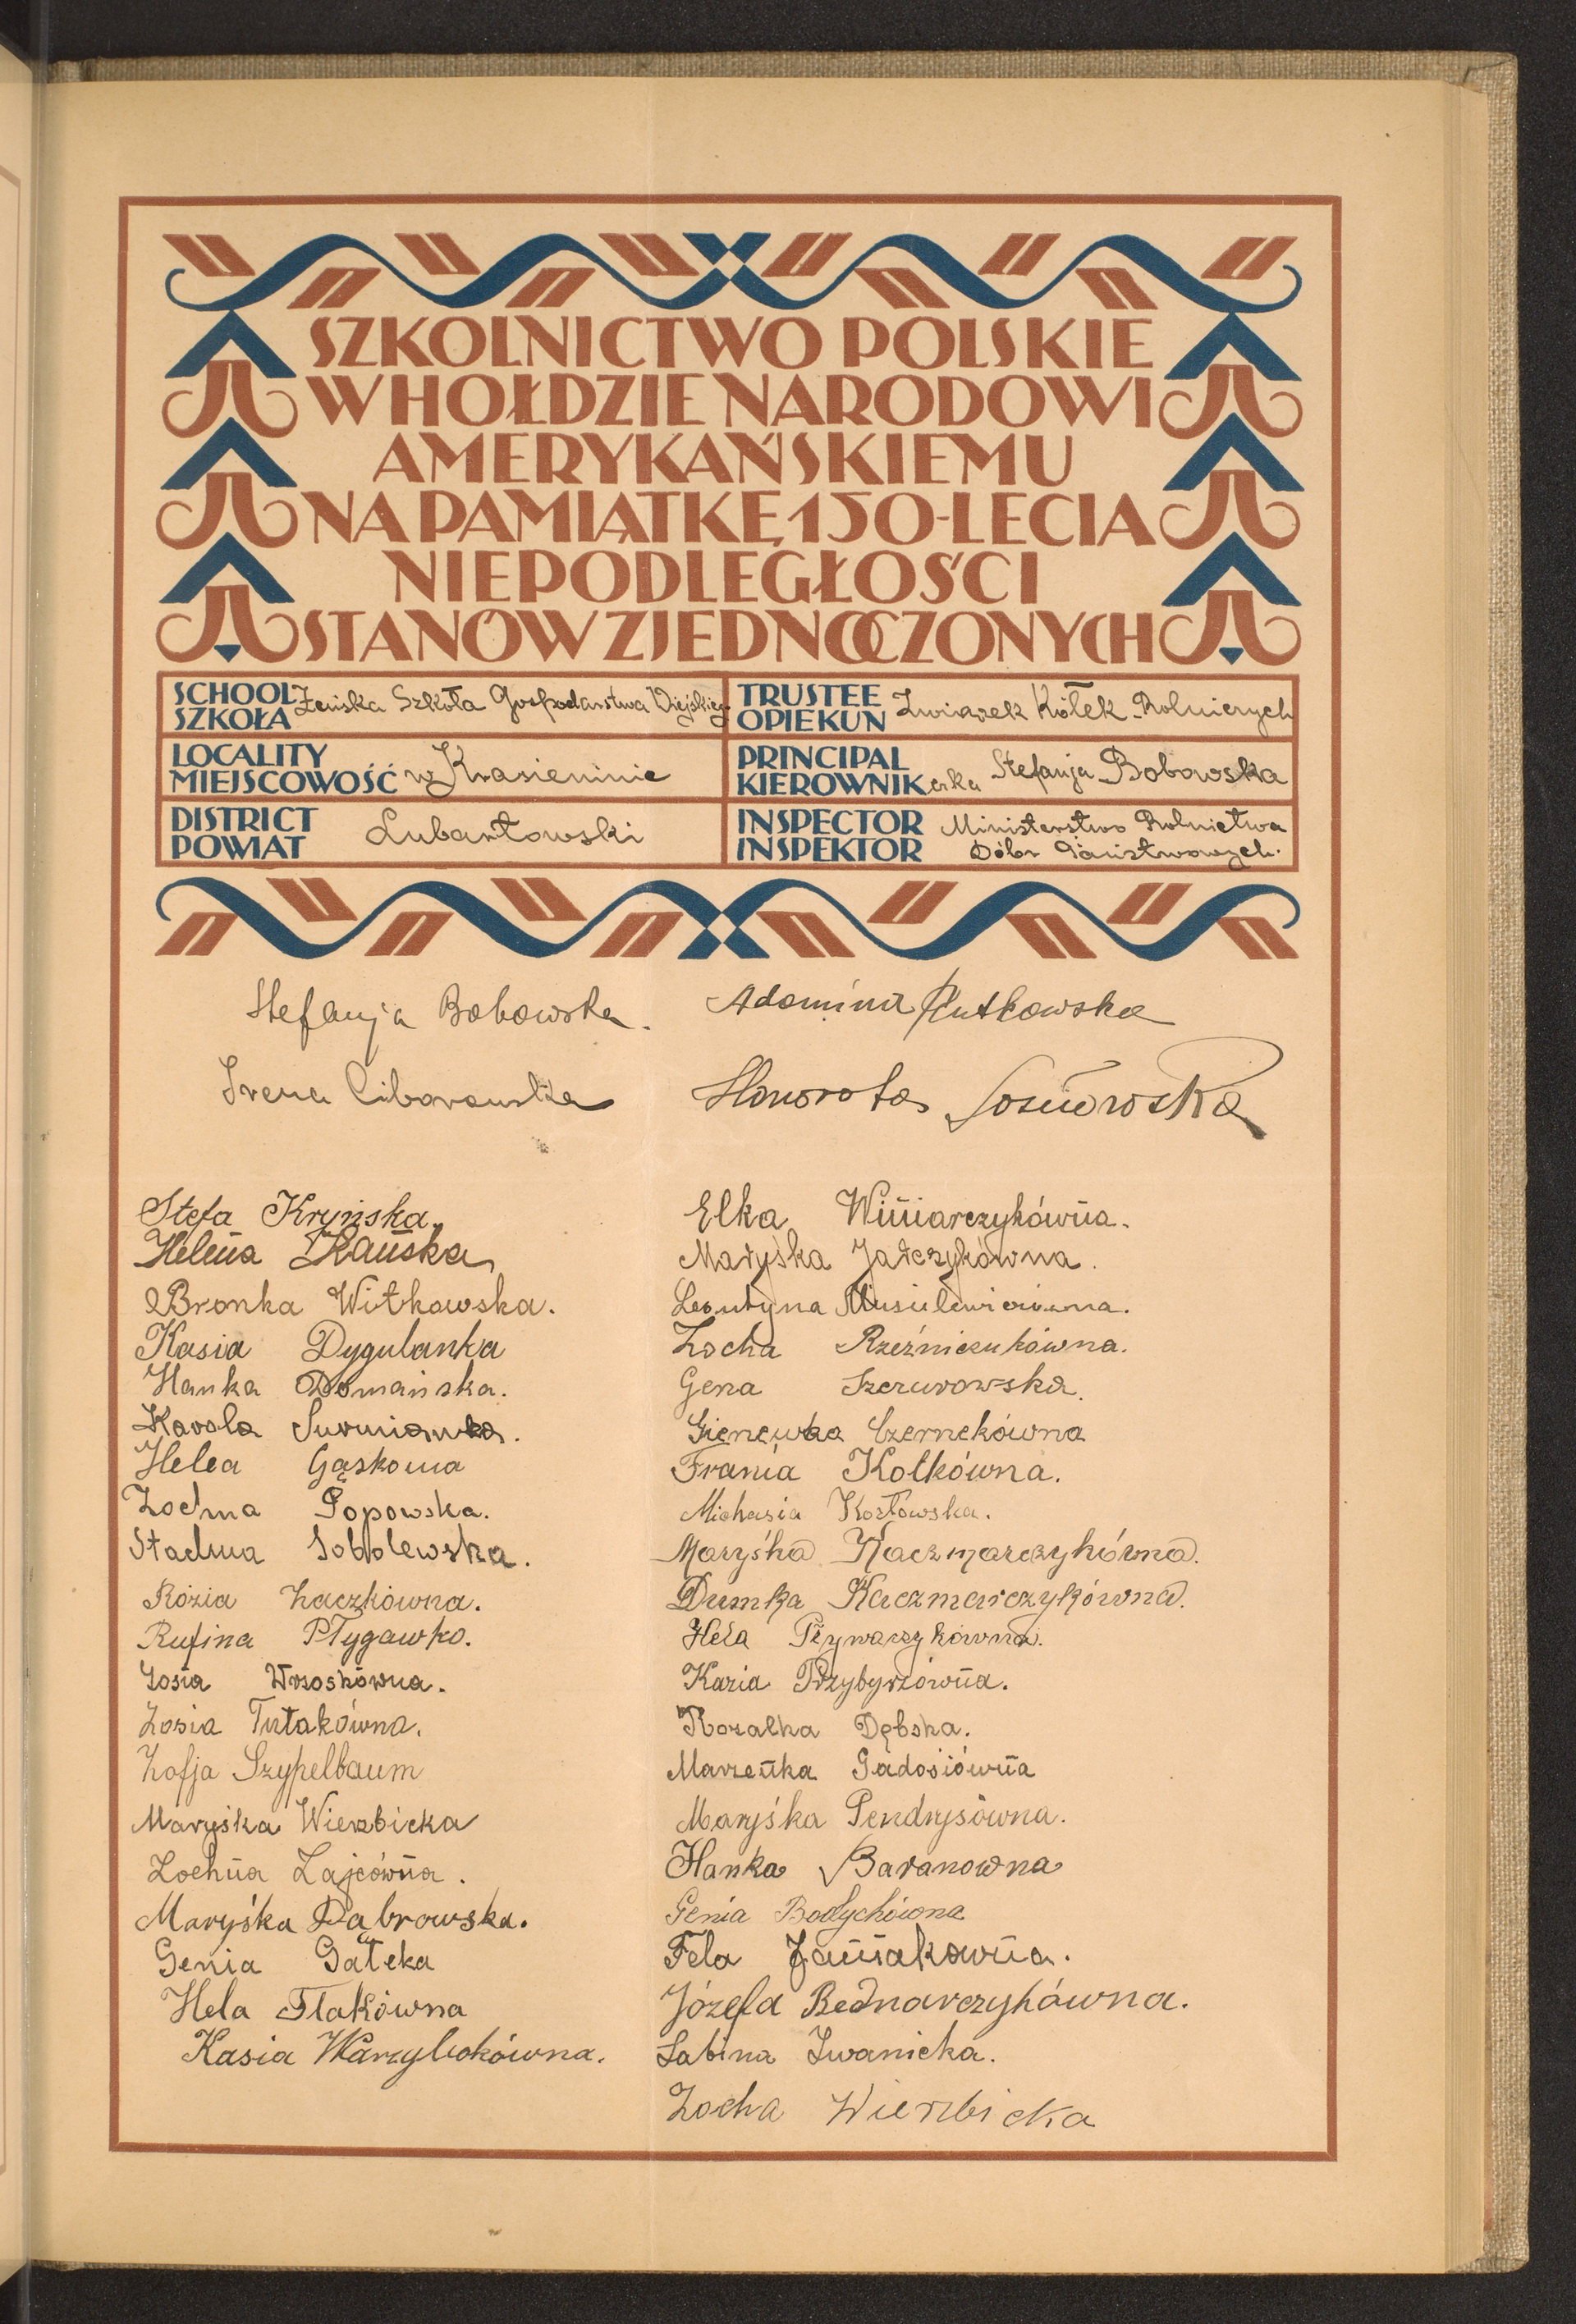 SZKOLNICTWO POLSKIE
W HOŁDZIE NARODOWI
AMERYKAŃSKIEMU
NA PAMIĄTKĘ 150-LECIA
NIEPODLEGŁOŚCI
STANÓW ZJEDNOCZONYCH
SCHOOL SZKOŁA Żeńska Szkoła Gospodarstwa Wiejskieg.
TRUSTEE OPIEKUN Związek Kółek Rolniczych
LOCALITY MIEJSCOWOŚĆ w Krasieninie
PRINCIPAL KIEROWNIK erka Stefanja Bobowska
DISTRICT POWIAT Lubartowski
INSPECTOR INSPEKTOR Ministerstwo Rolnictwa
Dóbr Państwowych.
Stefanja Bobowska.
Adamina Rutkowska
Irena Ciborowska
Honorata Sosnowska
Stefa Kryńska.
Helena Kańska
Bronka Witkowska.
Kasia Dygulanka
Hanka Domańska.
Karola Surmianka.
Helea Gąskowa
Zochna Popowska.
Stachna Sobolewska.
Rózia Łaczkówna.
Rufina Pługawko.
Zosia Wrzoskówna.
Zosia Tutakówna.
Zofja Szypelbaum
Maryśka Wierzbicka
Zochna Zajcówna.
Maryśka Dąbrowska.
Genia Gałeka
Hela Flakówna
Kasia Warzybokówna.
Elka Winiarczykówna.
Maryśka Jarczykówna.
Leontyna Musiulewiczówna.
Zocha Rzeźniczukówna.
Gena Szczurowska.
Gienewka Czernekówna
Frania Kotkówna.
Michasia Kozłowska.
Maryśka Kaczmarczykówna.
Dumka Kaczmarczykówna.
Hela
Kazia Przybyszówna.
Rozalka Dębska.
Marzenka Gadosiówna
Maryśka Pendrysówna.
Hanka Baranowna
Genia Bodychówna
Fela Janiakowna.
Józefa Bednarczykówna.
Sabina Iwanicka.
Zocha Wierzbicka